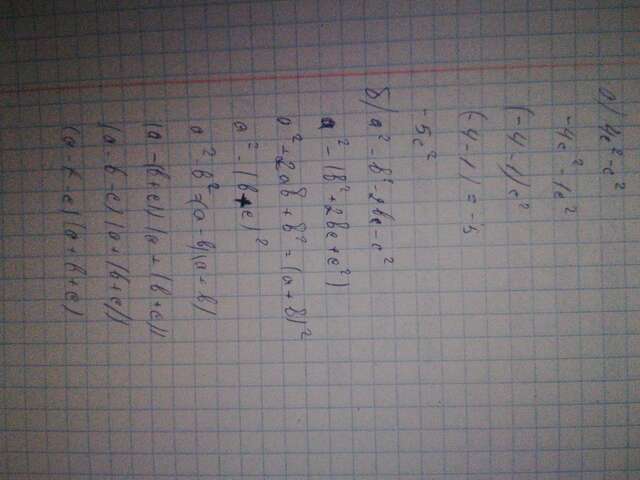 а) 4c² - c²
-4c² - 1c²
(-4 - 1)c²
(-4 - 1) = -5
-5c²
б) a² - b² - 2bc - c²
a² - (b² + 2bc + c²)
a² + 2ab + b² = (a + b)²
a² - (b + c)²
a² - b² = (a - b)(a + b)
(a - (b + c)) (a + (b + c))
(a - b - c) (a + (b + c))
(a - b - c) (a + b + c)